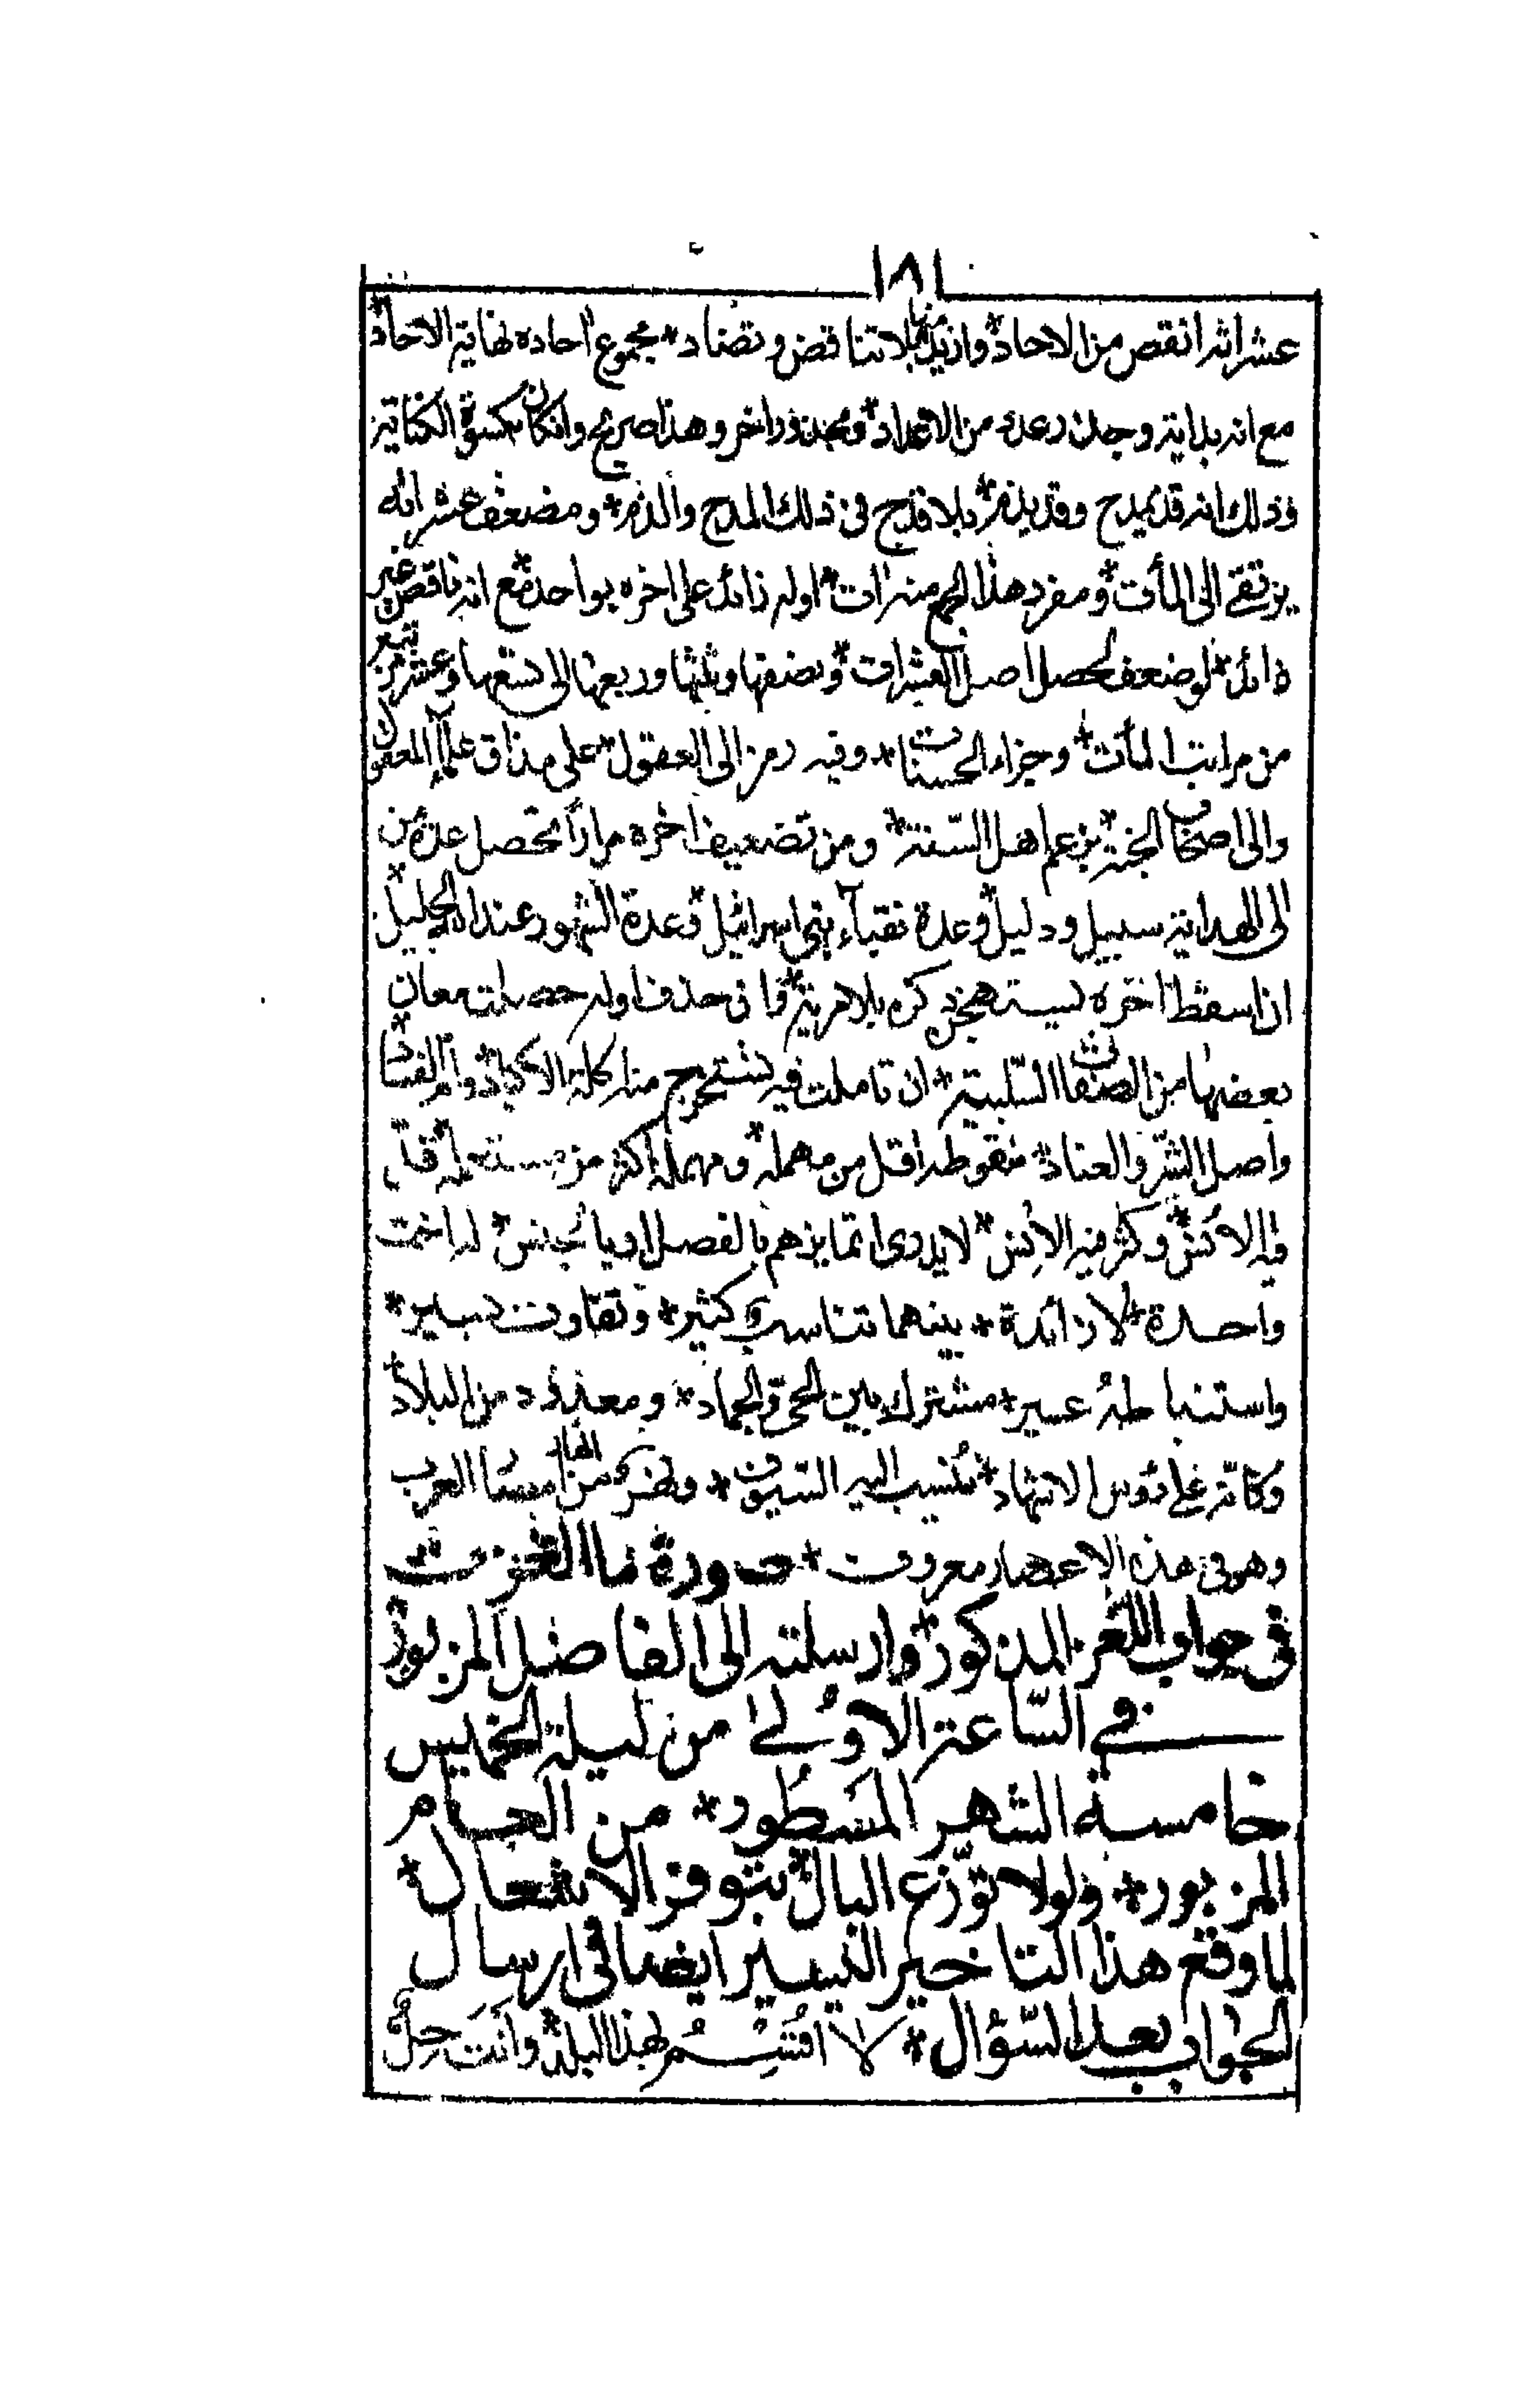 ١٨١
عشراته انقص من الاحاد * وازيد منها بلا تناقض وتضاد * مجموع احاده نهاية الاحاد *
مع انه بداية وجذر عدد من الاعداد * ومجذور اخر وهذا صريح وان كان بكسوة الكناية
وذلك انه قد يمدح وقد يذم * بلا قدح فى ذلك المدح والذم * ومضعف عشراته
يرتقى الى المأت * ومفرد هذا الجمع منه ات * اوله زائد على اخره بواحد * مع انه ناقص غير
زائد * لو ضعف لحصل اصل العشرات * ونصفها وثلثها وربعها الى تسعها وعشر
من مراتب المأت * وجزاء الحسنات * وفيه رمز الى العقول * على مذاق علماء المعقول
والى اصحاب الجنة * بزعم اهل السنة * ومن تضعيف اخره مرارا تحصل عدة من
الى الهداية سبيل ودليل * وعدة نقباء بنى اسرائيل * وعدة الشهور عند الجليل *
اذا سقط اخره ليستهجن ذكره بلا مرية * فاذ حذف اوله حصلت معان
بعضها من الصفات السلبية * ان تاملت فيه تستخرج منه كلة الاكباد * وام الفساد *
واصل الشر والعناد * منقوطه اقل من مهمله * ومهمله اكثر من مستعمله * قل
فيه الانس * وكثر فيه الانس * لا يدرى اتمايزهم بالفصل او بالجنس * له اخت
واحدة * لا زائدة * بينهما تناسب كثير * وتفاوت يسير *
واستنباطه عسير * مشترك بين الحى والجماد * ومعدود من البلاد *
وكانه على رؤس الاشهاد * تنسب اليه السيوف * العرب
وهو فى هذه الاعصار معروف * صورة ما الغزت
فى جواب اللغز المذكور * وارسلته الى الفاضل المزبور *
فى الساعة الاولى من ليلة الخميس
خامسة الشهر المسطور * من العام
المزبور * ولولا توزع البال * بتوفر الاشغال *
لما وقع هذا التاخير اليسير ايضا فى ارسال
الجواب بعد السؤال * لَا اُقْسِمُ بهذا البلد * وانت حِلٌّ